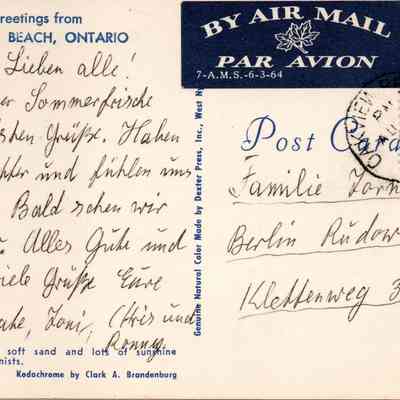 reetings from
BEACH, ONTARIO
Lieben alle!
er Sommerfrische
sten Grüße. Haben
und fühlen uns
Bald sehen wir
Alles Gute und
iele Grüße Eure
Toni, Chris und
Ronny.
soft sand and lots of sunshine
nists.
Kodochrome by Clark A. Brandenburg
Genuine Natural Color Made by Dexter Press, Inc., West N
BY AIR MAIL
PAR AVION
7-A.M.S.-6-3-64
Post Car
Familie Zorn
Berlin Rudow
Klettenweg 3